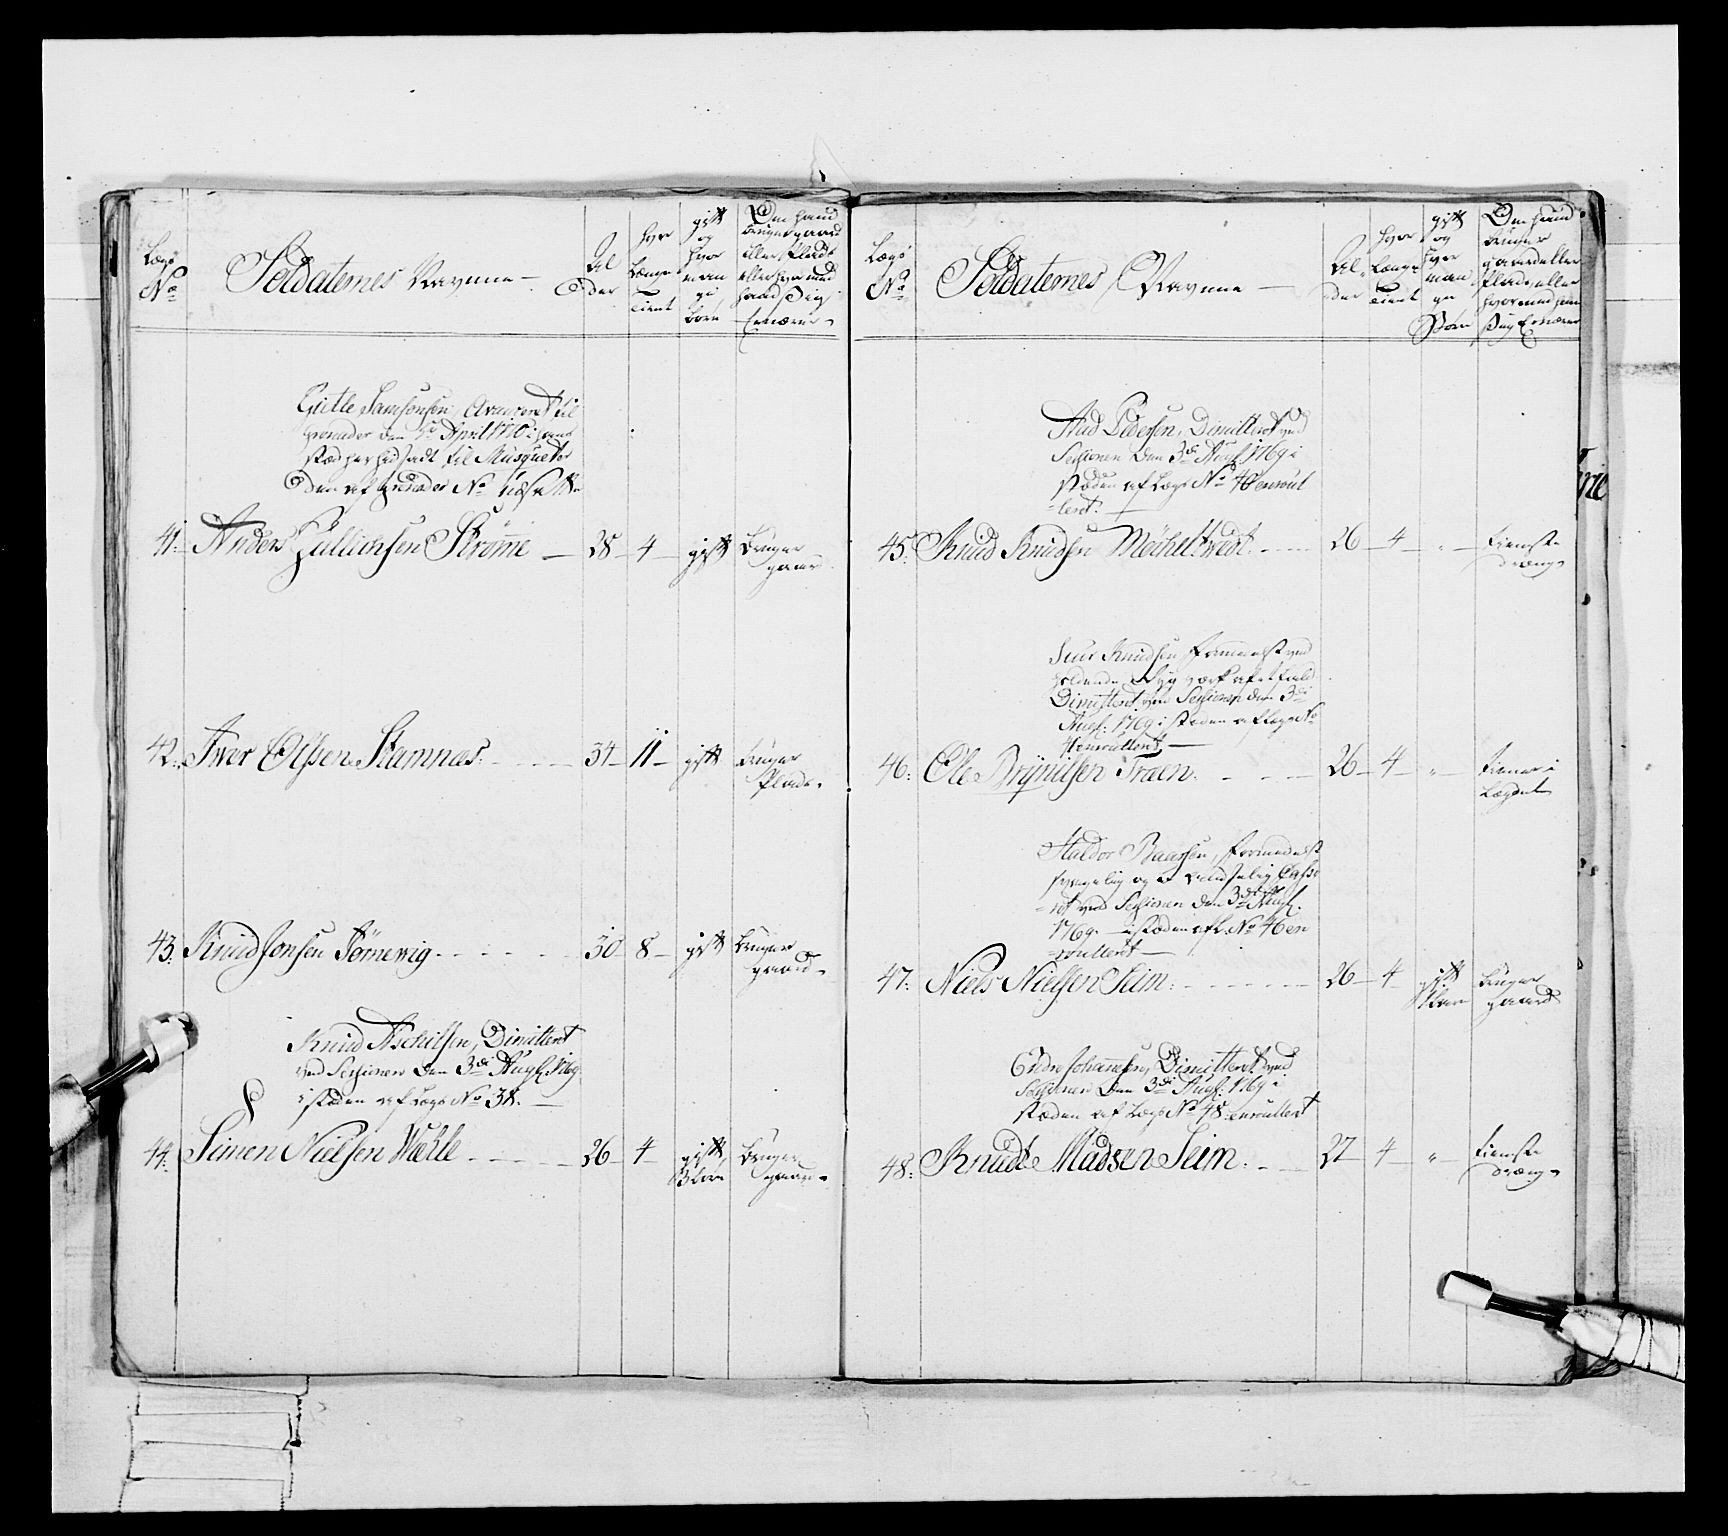 Lægs
No
Soldaternes Navne
Al
der
hvor
Længe
Tient
gift
og
hvor
man
ge
børn
Om hand
bruger gaard
eller Plads
eller hvormed
hand Sig
Ernærer
Gietle Samsonsen, Avanceret til
Grenader den April 1770: hans
til Musqueter
af Grenader No
41: Anders Strømme 28 4 gift Bruger
gaard
42: Iver Olssen Stamnæs 34 11 gift bruger
Plads
43: Knud Jonsen Tørnewig 30 8 gift bruger
gaard
Knud Aschilsen, Dimitteret
ved Sessionen den 3di Augl: 1769
i stæden af Lægs No 38.
44: Simon Nielsen Wæhle 26 4 gift, Bruger
3 børn gaard
Lægs
No
Soldaternes Navne
Al
der
hvor
Længe
Tient
gift
og
hvor
man
ge
Børn
Om hand
bruger
gaard eller
Plads, eller
hvormed han
Sig Ernærer
Aad Pedersen, Dimitteret ved
Sessionen den 3di Augl: 1769 i
stæden af Lægs No enroul
leret.
45: Knud Knudsen 26 4 " tieneste
dræng
Siur Knudsen formedelst ved
Dimitteret ved Sessionen den 3di
Augl: 1769 i stæden af Lægs No
enroulleret
46: Ole Brynilsen Træen 26 4 " tiener i
Lægdet
Haldor Baarsen, formedelst
svagelig og Casse
ret ved Sessionen den 3di Augl:
1769 i stæden af L: No 46 en
roulleret
47: Niels Nielsen Seim 26 4 gift bruger
gaard
Johannesen, Dimitteret ved
Sessionen den 3di Augl: 1769 i
stæden af Lægs No 48 enroulleret
48: Knudt Madsen Seim 27 4 " tieneste
dræng